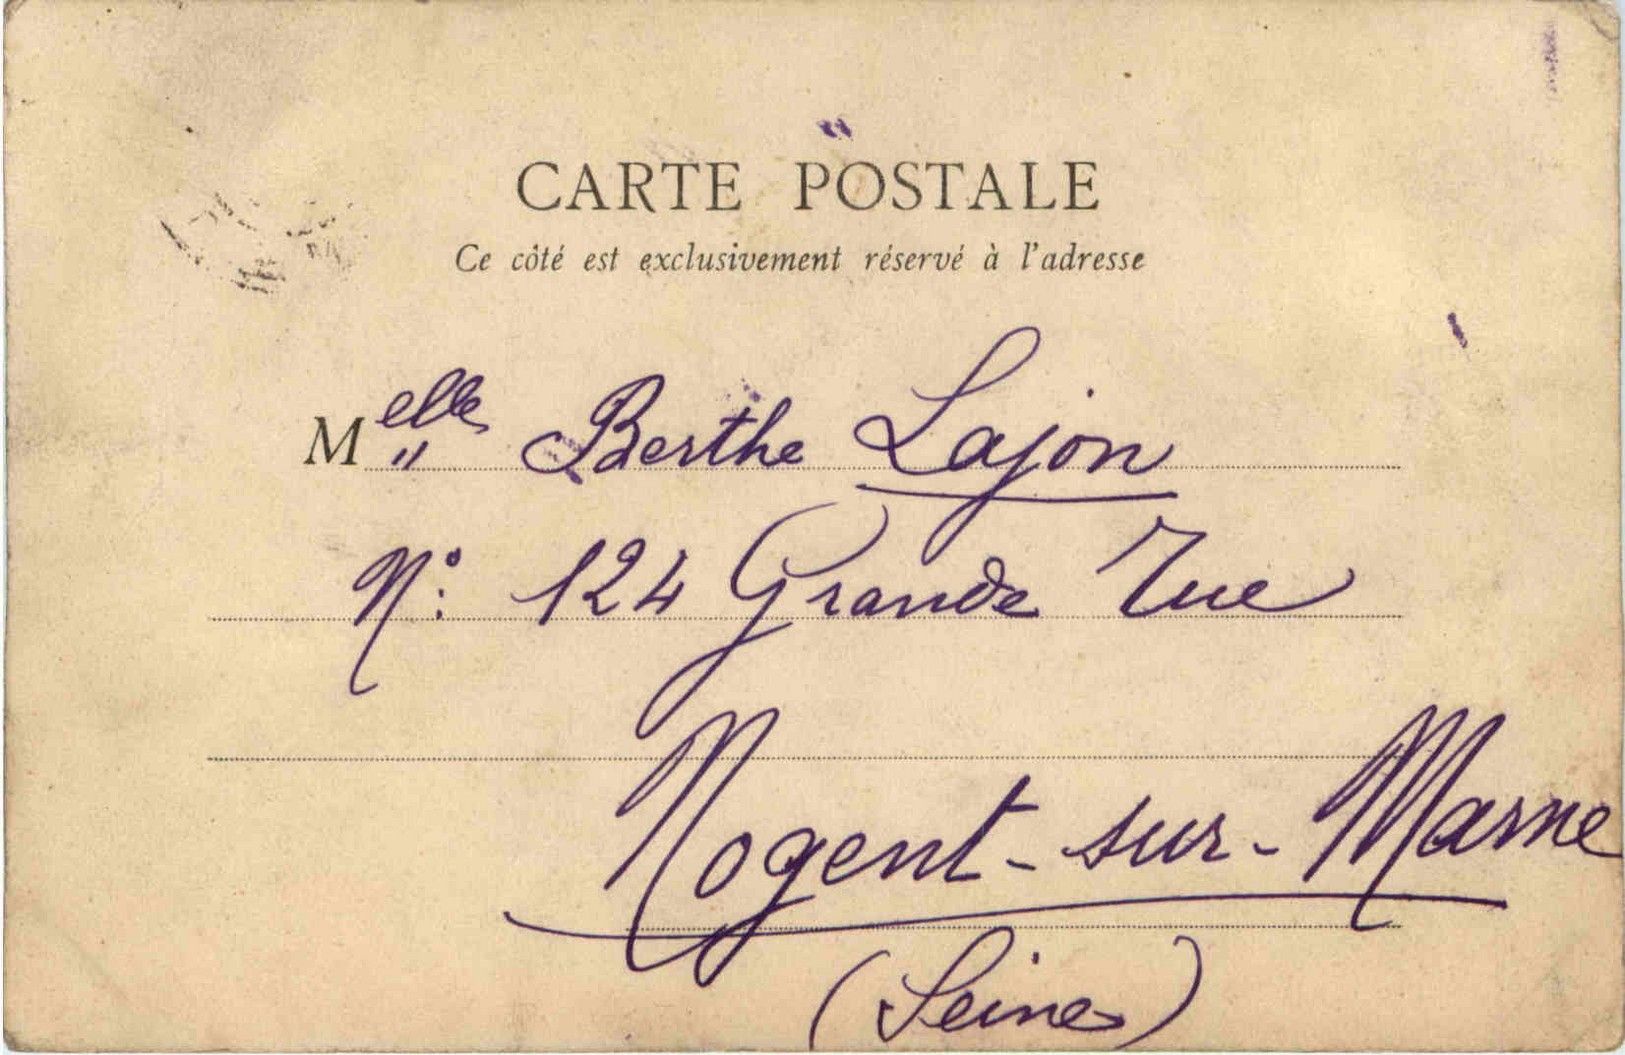 CARTE POSTALE
Ce côté est exclusivement réservé à l'adresse
Melle Berthe Lajon
N°: 124 Grande rue
Nogent-sur-Marne
(Seine)